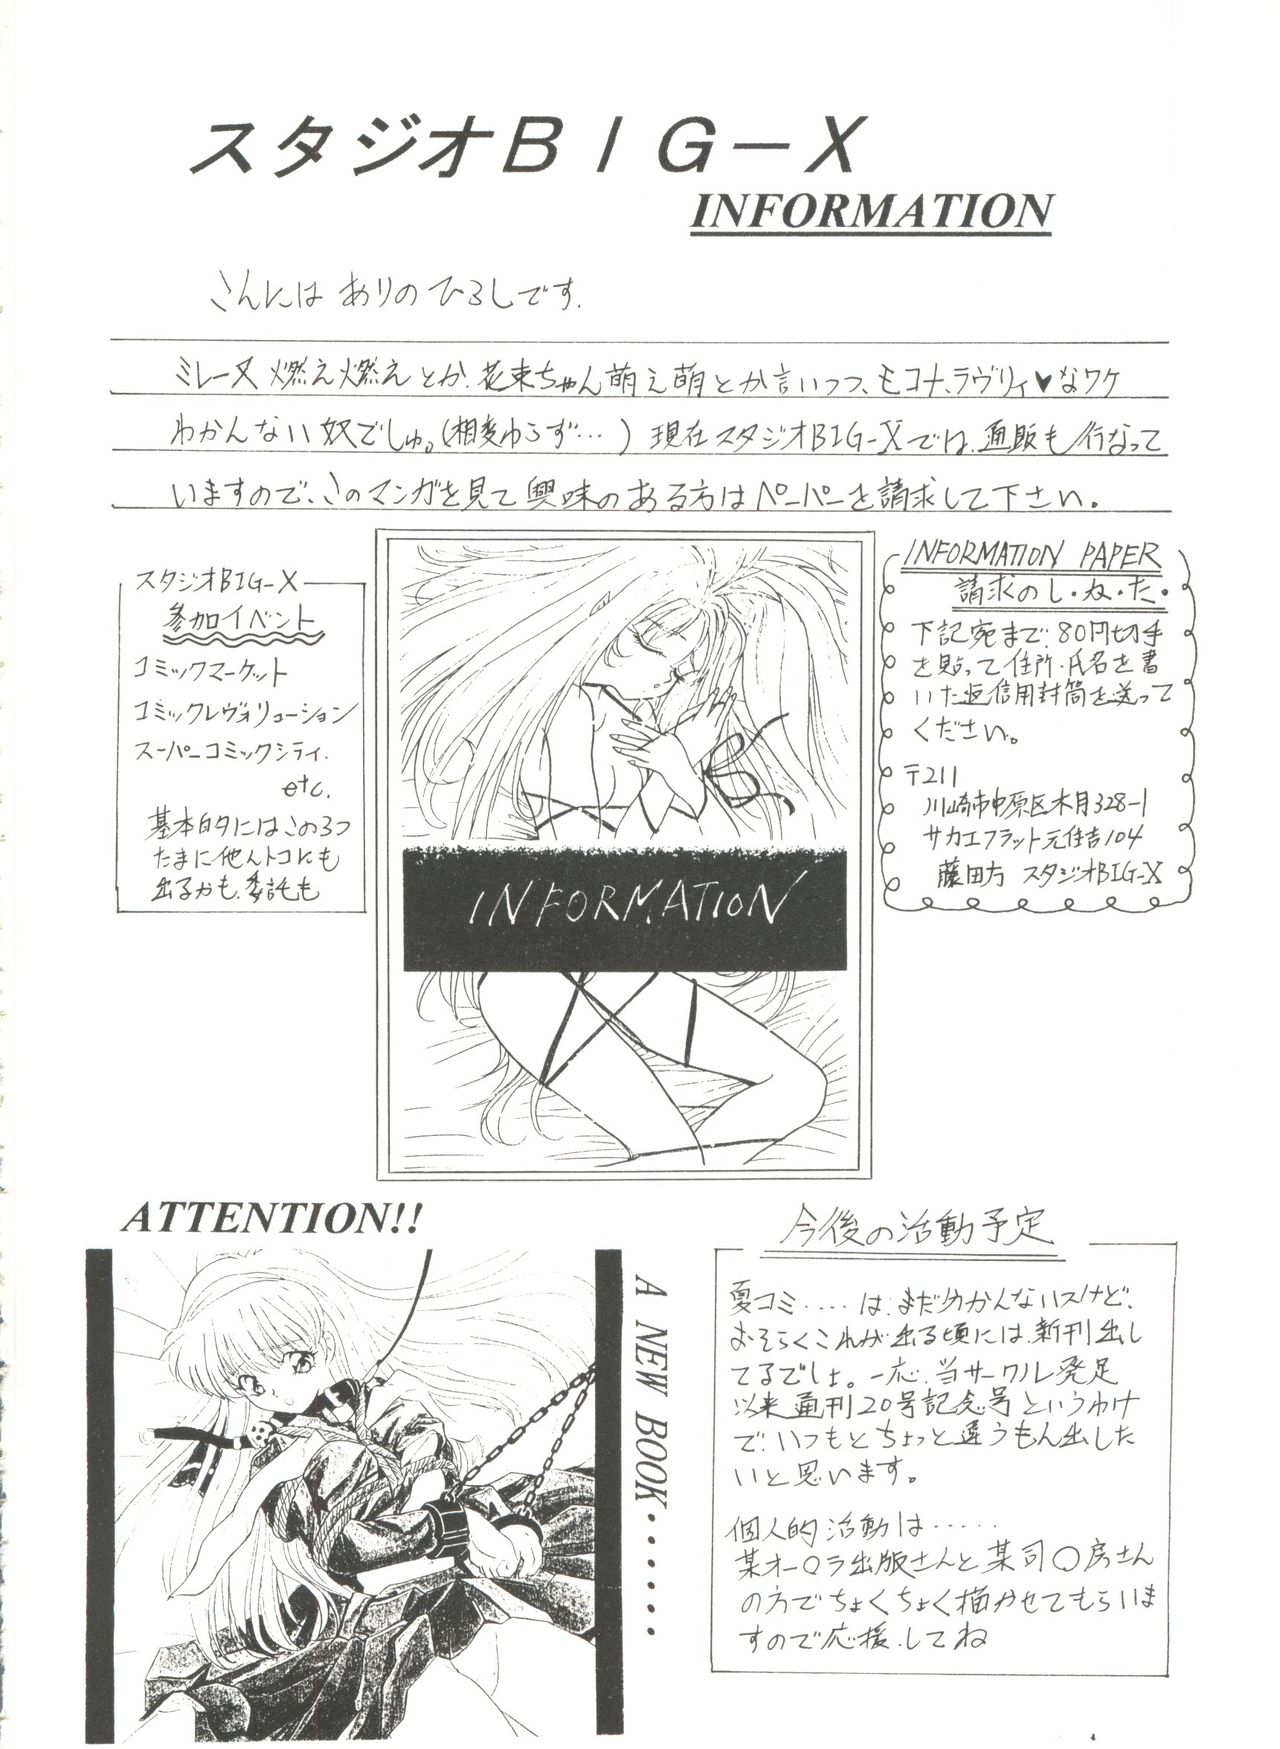 スタジオBIG-X
INFORMATION
こんにには ありのひろしです.
ミレーヌ燃え燃えとか、花束ちゃん萌え萌とか言いつつ、モコナ、ラヴリィ♥なワケ
わかんない奴でしゅ。(相変わらず…) 現在スタジオBIG-Xでは、通販も行なって
いますので、このマンガを見て興味のある方はペーパーを請求して下さい。
スタジオBIG-X
参加イベント
コミックマーケット
コミックレヴォリューション
スーパーコミックシティ.
etc.
基本的にはこの3つ
たまに他んトコにも
出るかも.委託も
INFORMATION
INFORMATION PAPER
請求のし・か・た・
下記宛まで、80円切手
を貼って住所・氏名を書
いた返信用封筒を送って
ください。
〒211
川崎市中原区木月328-1
サカエフラット元住吉104
藤田方 スタジオBIG-X
ATTENTION!!
A NEW BOOK.......
今後の活動予定
夏コミ....は、まだ分かんないスけど、
おそらくこれが出る頃には、新刊出し
てるでしょ。一応、当サークル発足
以来通刊20号記念号というわけ
で、いつもとちょっと違うもん出した
いと思います。
個人的活動は……
某オー○ラ出版さんと某司○房さん
の方でちょくちょく描かせてもらいま
すので応援してね